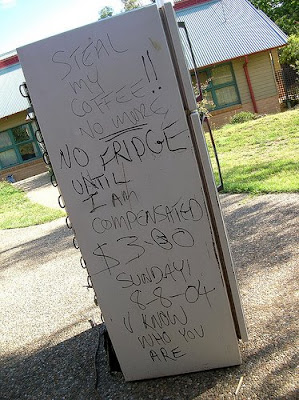 STEAL
MY
COFFEE!!
NO MORE
NO FRIDGE
UNTIL
I AM
COMPENSATED
$3.80
SUNDAY!
8-8-04
U KNOW
WHO YOU
ARE